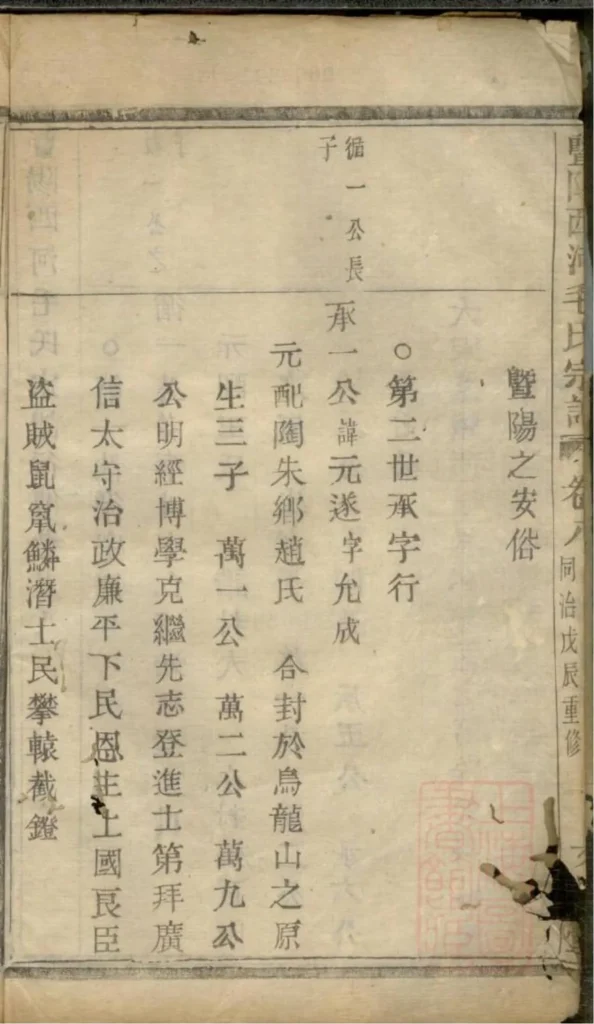 暨陽西河毛氏宗譜
卷八
同治戊辰重修
暨陽之安俗
○第二世承字行
循一公長
子
承一公諱元遂字允成
元配陶朱鄉趙氏　合封於烏龍山之原
生三子　萬一公　萬二公　萬九公
公明經博學克繼先志登進士第拜廣
信太守治政廉平下民恩主上國良臣
盜賊鼠竄鱗潛士民攀轅截鐙